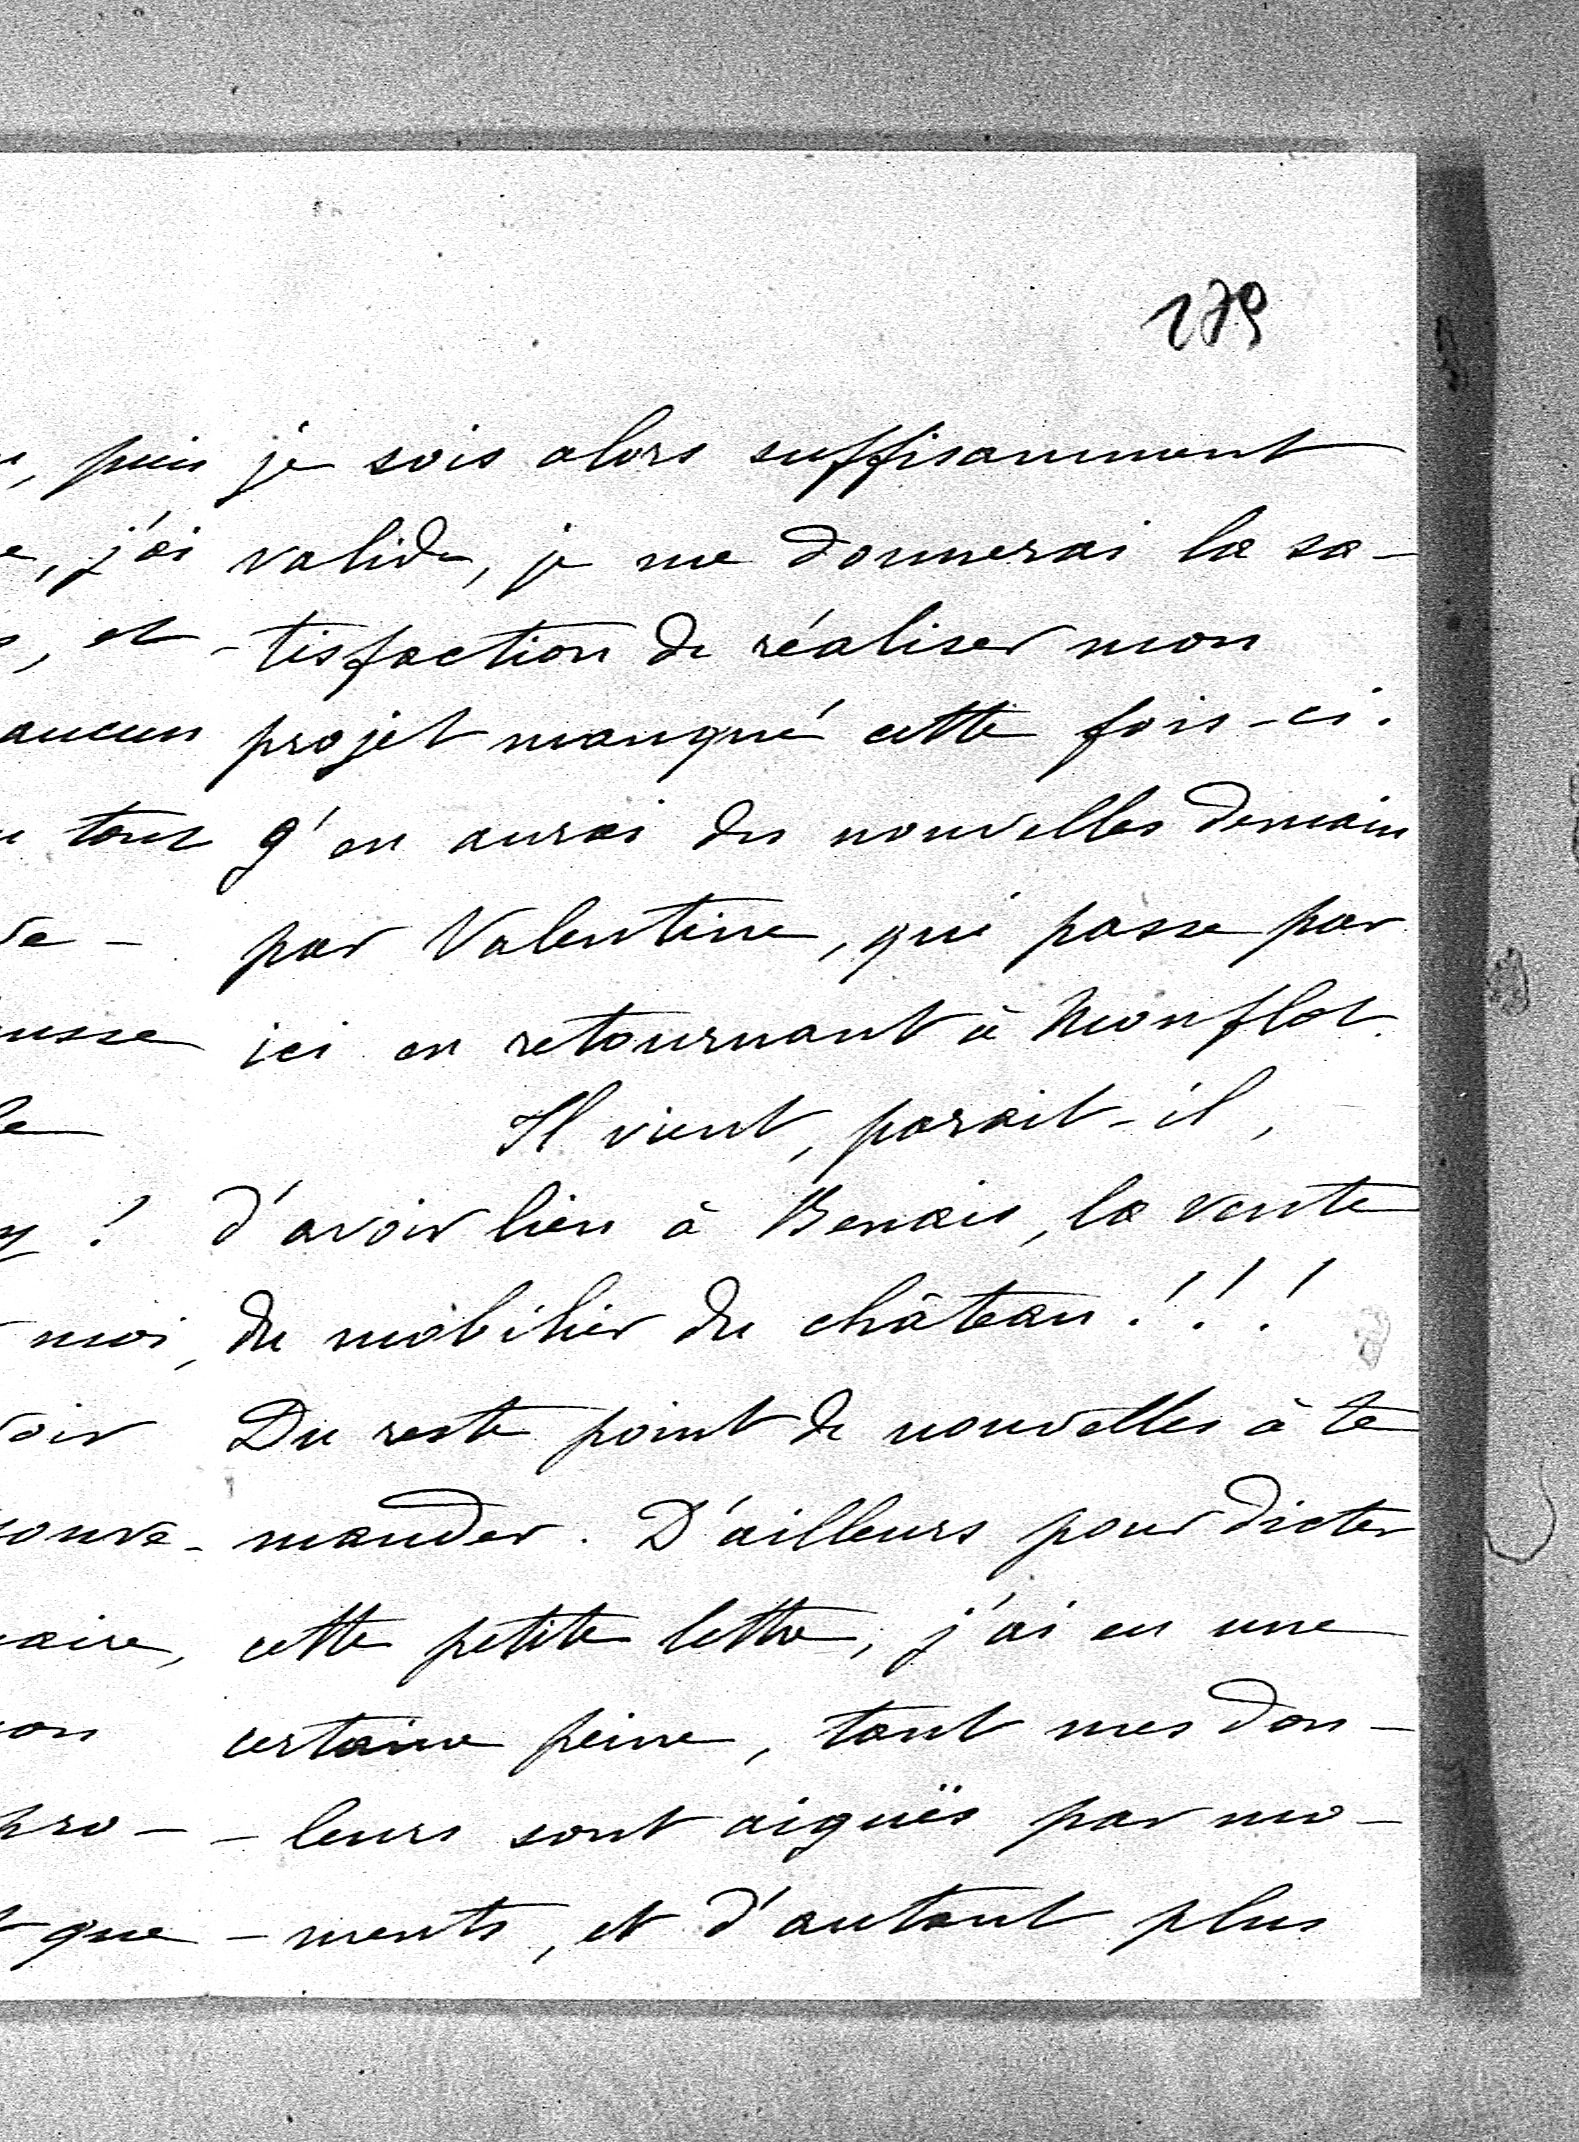 179
je sois alors suffisamment
valide, je me donnerai la sa-
-tisfaction de réaliser mon
projet manqué cette fois-ci.
J'en aurai des nouvelles demain
par Valentine, qui passe par
ici en retournant à Monflot.
Il vient, parait-il,
d'avoir lieu à Benais, la vente
du mobilier du château !!!
Du reste point de nouvelles à te
mander. D'ailleurs pour dicter
cette petite lettre, j'ai eu une
certaine peine, tant mes dou-
-leurs sont aiguës par mo-
-ments, et d'autant plus
puis
j'ai
et
aucun
tout
moi,
que